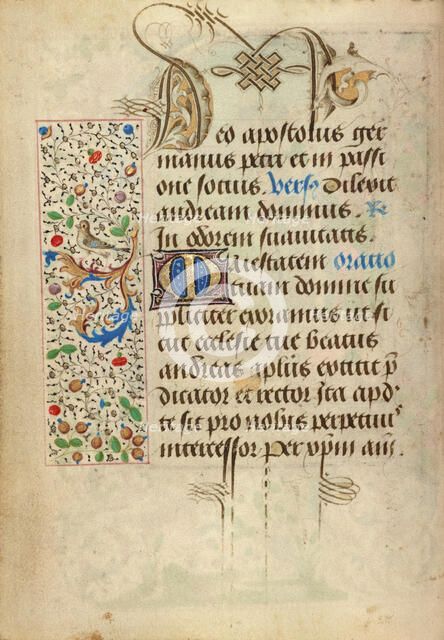 Deo apostolus ger
manus petri et in passi
one socius. Vers9 Dilexit
andream dominus. R
In odorem suauitatis.
Maiestatem oratio
tuam domine su
pliciter exoramus ut si
cut ecclesie tue beatus
andreas apl̄us extitit p̄
dicator et rector Ita apd
te sit pro nobis perpetuus
intercessor Per xp̄m